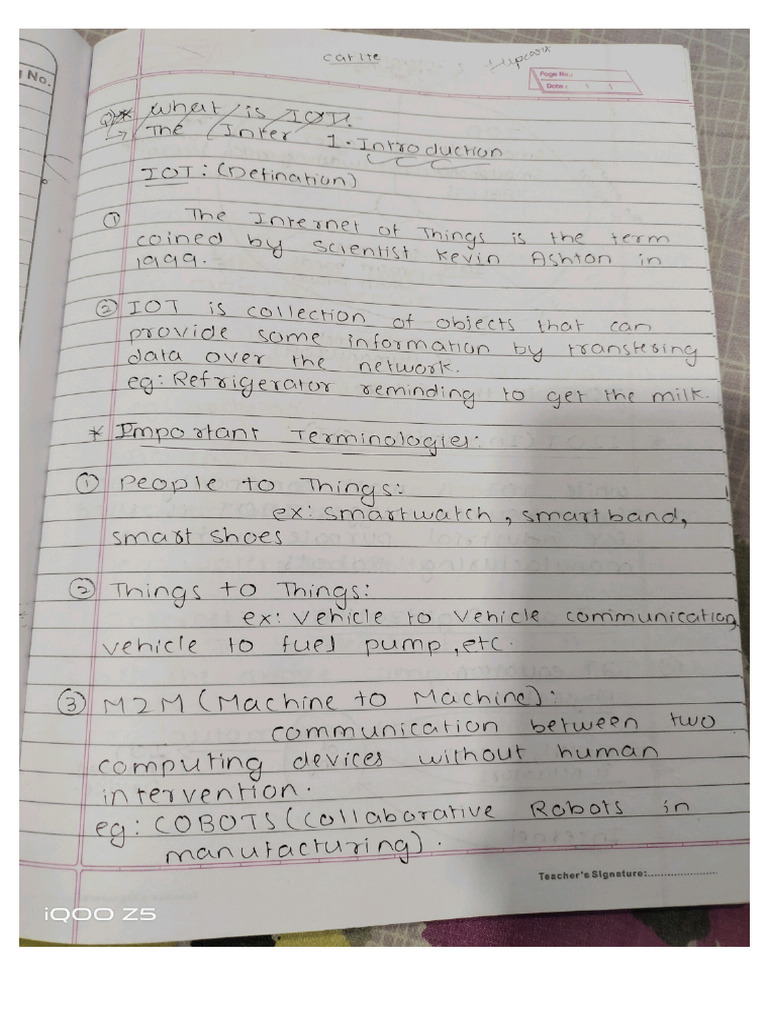 No.
carite
Page No.:
Date: / /
Q* What is IOT?
→ The Inter 1. Introduction
IOT: (Defination)
① The Internet of Things is the term
coined by Scientist Kevin Ashton in
1999.
② IOT is collection of objects that can
provide some information by transfering
data over the network.
eg: Refrigerator reminding to get the milk.
* Important Terminologies:
① People to Things:
ex: smartwatch, smartband,
smart shoes
② Things to Things:
ex: vehicle to vehicle communication,
vehicle to fuel pump, etc.
③ M2M (Machine to Machine):
communication between two
computing devices without human
intervention.
eg: COBOTS (collaborative Robots in
manufacturing).
Teacher's Signature:......................
iQOO Z5